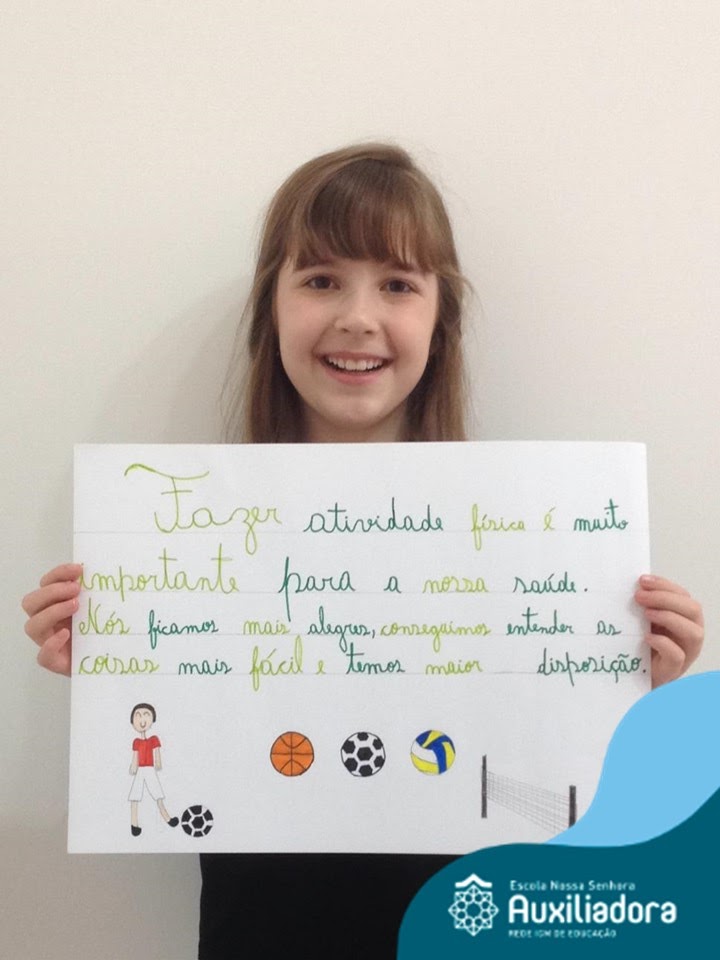 Fazer atividade física é muito
importante para a nossa saúde.
Nós ficamos mais alegres, conseguimos entender as
coisas mais fácil e temos maior disposição.
Escola Nossa Senhora
Auxiliadora
REDE ICM DE EDUCAÇÃO